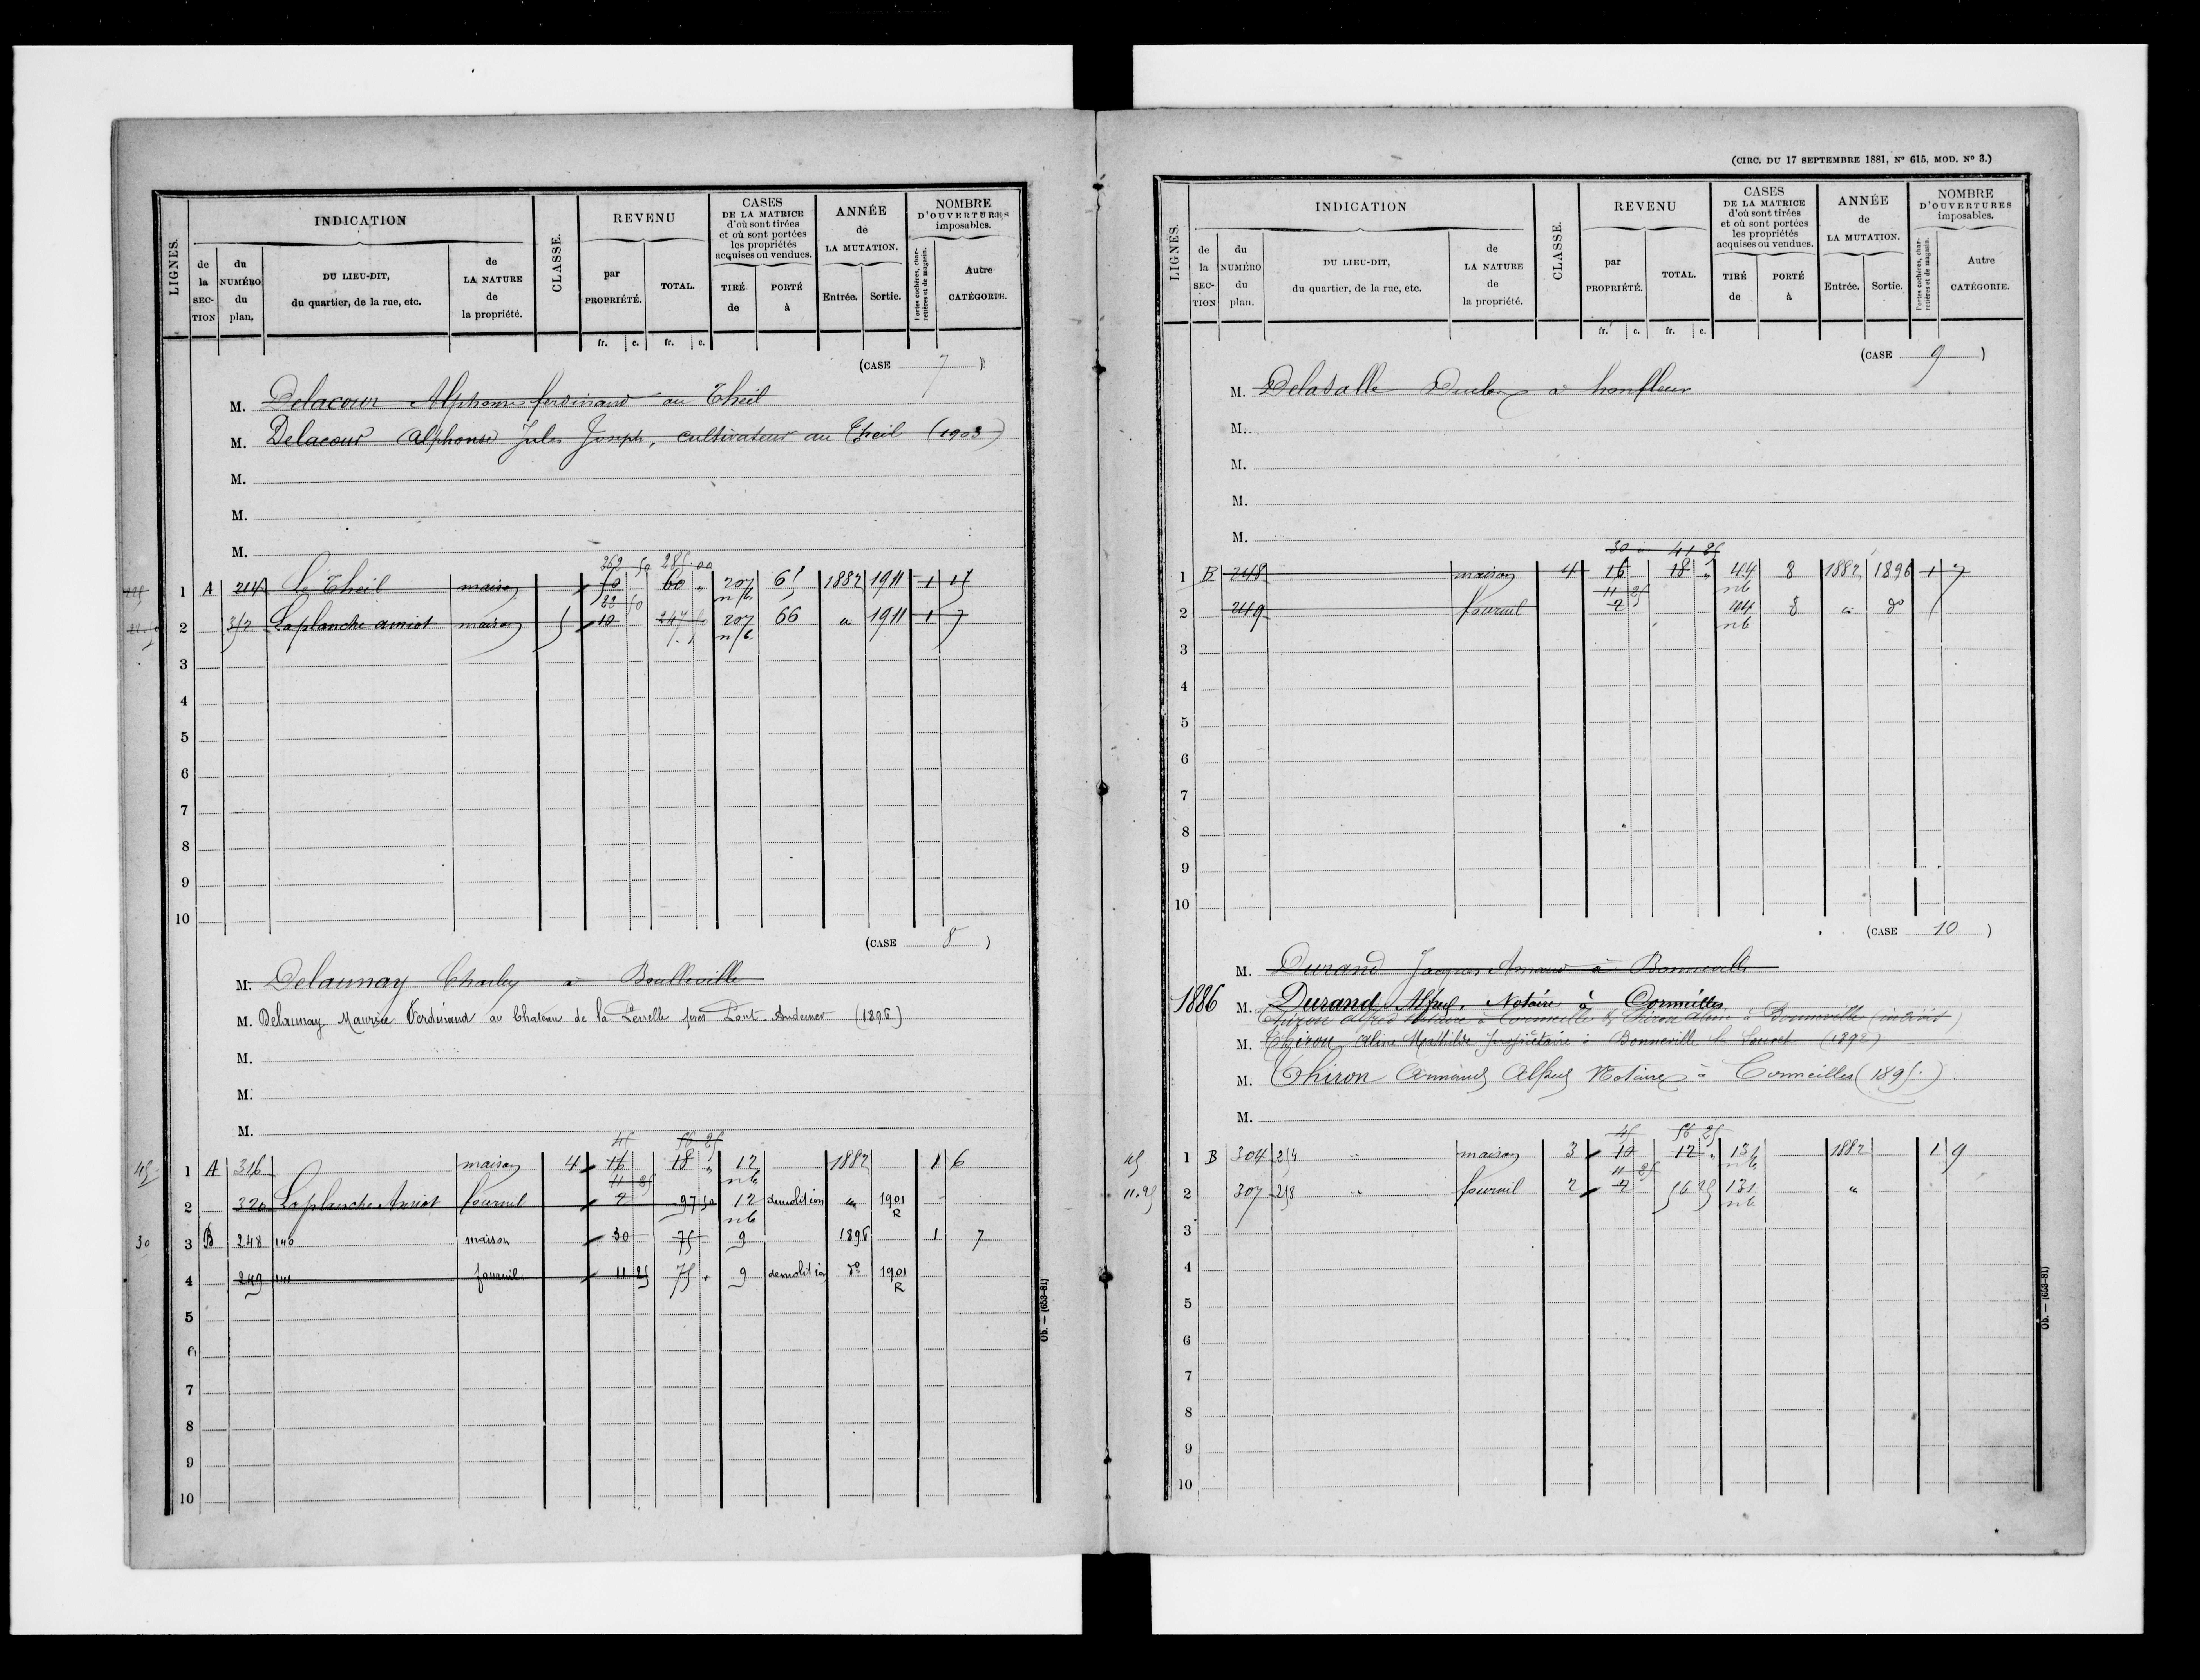 LIGNES.
INDICATION
de la SECTION
du NUMÉRO du plan.
DU LIEU-DIT, du quartier, de la rue, etc.
de LA NATURE de la propriété.
CLASSE.
REVENU
par PROPRIÉTÉ.
TOTAL.
CASES DE LA MATRICE d'où sont tirées et où sont portées les propriétés acquises ou vendues.
TIRÉ de
PORTÉ à
ANNÉE de LA MUTATION.
Entrée.
Sortie.
NOMBRE D'OUVERTURES imposables.
Portes cochères, charretières et de magasin.
Autre CATÉGORIE.
fr. c. fr. c.
(CASE 7)
M. Delacour Alphonse ferdinand au Theil
M. Delacour Alphonse Jules Joseph, cultivateur au Theil (1903)
M.
M.
M.
362 50 285.00
1 A 214 Le Theil maison 50 60 " 207 65 1882 1911 1 15
n/b
22 50
2 352 Laplanche amiot maison 5 10 247 50 207 66 " 1911 1 7
n/b
3
4
5
6
7
8
9
10
(CASE 8)
M. Delaunay Charles à Boulleville
M. Delaunay Maurice Ferdinand au Chateau de la près Pont-Audemer (1896)
M.
M.
M.
45 56 25
45 1 A 316 maison 4 16 18 " 12 1882 1 6
11 25 nb
2 320 Laplanche Amiot fournil 2 97 50 12 demolition " 1901
nb R
30 3 B 248 140 maison 30 75 9 1896 1 7
4 249 141 fournil 11 25 75 " 9 demolition d° 1901
R
5
6
7
8
9
10
Ob. — (653-81)
(CIRC. DU 17 SEPTEMBRE 1881, N° 615, MOD. N° 3.)
LIGNES.
INDICATION
de la SECTION
du NUMÉRO du plan.
DU LIEU-DIT, du quartier, de la rue, etc.
de LA NATURE de la propriété.
CLASSE.
REVENU
par PROPRIÉTÉ.
TOTAL.
CASES DE LA MATRICE d'où sont tirées et où sont portées les propriétés acquises ou vendues.
TIRÉ de
PORTÉ à
ANNÉE de LA MUTATION.
Entrée.
Sortie.
NOMBRE D'OUVERTURES imposables.
Portes cochères, charretières et de magasin.
Autre CATÉGORIE.
fr. c. fr. c.
(CASE 9)
M. Delasalle à honfleur
M.
M.
M.
M.
30 " 41 25
1 B 248 maison 4 16 18 " 44 8 1882 1896 1 7
11 25 nb
2 249 fournil 2 44 8 " d°
nb
3
4
5
6
7
8
9
10
(CASE 10)
M. Durand Jacques Armand à Bonneville
1886 M. Durand Alfred, Notaire à Cormeilles
Thiron Alfred Notaire à Cormeille & Thiron Aline à Bonneville (indivis)
M. Thiron Aline Mathilde propriétaire à Bonneville la Louvet (1892)
M. Thiron Armand Alfred Notaire à Cormeilles (1895.)
M.
45 56 25
45 1 B 304 254 " maison 3 10 12 " 131 1882 1 9
11 25 nb
11.25 2 307 258 " fournil 2 2 56 25 131 "
nb
3
4
5
6
7
8
9
10
Ob. — (653-81)